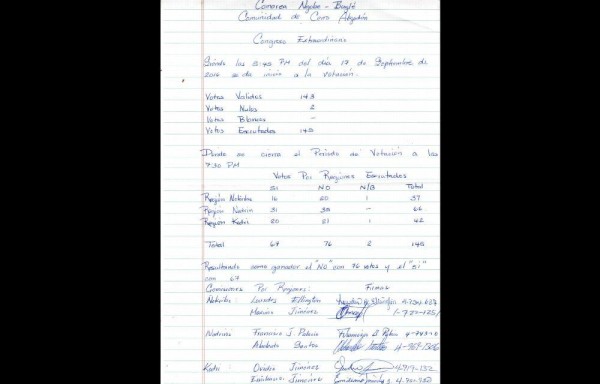 Comarca Ngobe - Buglé
Comunidad de Cerro Algodón
Congreso Extraordinario
Siendo las 5:45 PM del día 17 de Septiembre de
2016 se da inicio a la votación.
Votos Validos 143
Votos Nulos 2
Votos Blancos -
Votos Escrutados 145
Donde se cierra el Periodo de Votación a las
7:30 PM
Votos Por Regiones Escrutados
SI NO N/B Total
Región Nokribo 16 20 1 37
Región Nedrin 31 35 - 66
Región Kodri 20 21 1 42
Total 67 76 2 145
Resultando como ganador el "NO" con 76 votos y el "SI"
con 67
Comisiones Por Regiones: Firmas
Nokribo: Lourdes Ellington
Jiménez
Nedrini Francisco J. Palacio
Abelardo Santos
Kodri: Jiménez
Jiménez